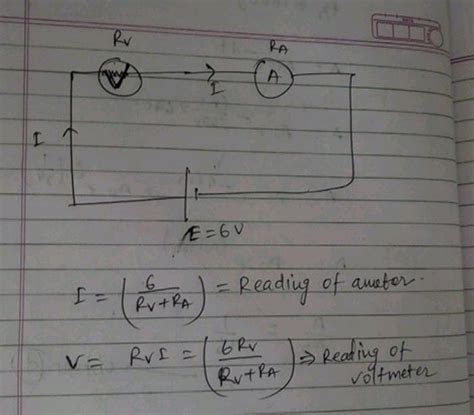 Rv RA
V I A
I
E = 6V
I = (6 / (Rv + RA)) = Reading of ameter.
V = RvI = (6Rv / (Rv + RA)) ⇒ Reading of
voltmeter